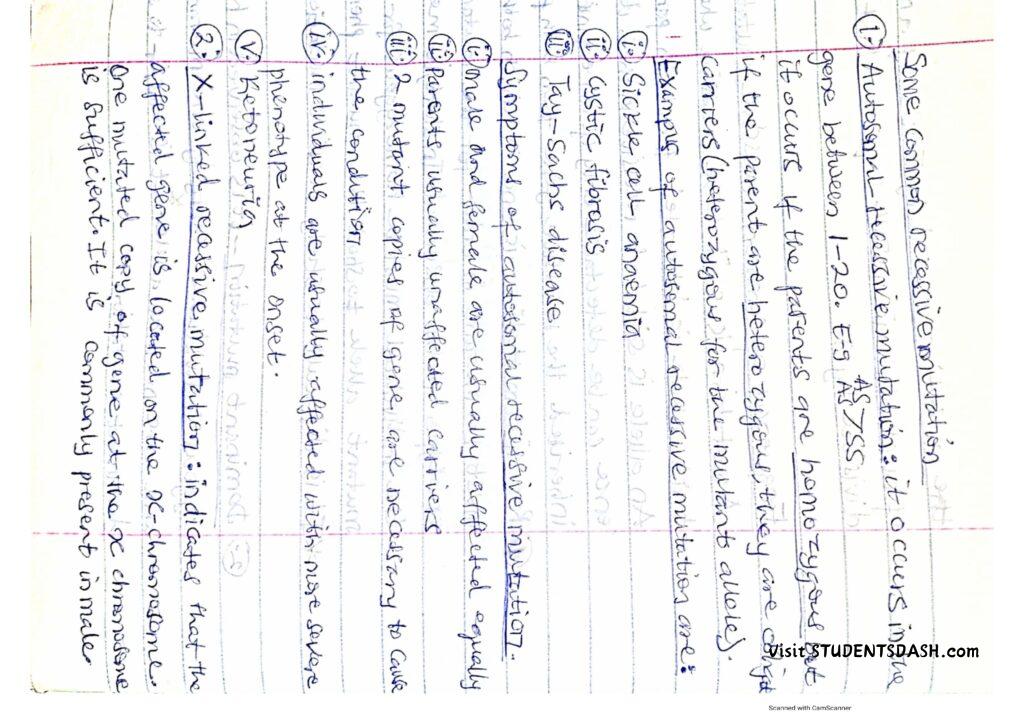 Some common recessive mutation
1. Autosomal recessive mutation: it occurs in the
gene between 1-20. Eg AS AS > SS
it occurs if the parents are homozygous but
if the parent are heterozygous, they are
carriers (heterozygous for the mutant allele).
Examples of autosomal recessive mutation are:
i. Sickle cell anaemia
ii. Cystic fibrosis
iii. Tay-Sachs disease
Symptoms of autosomal recessive mutation.
i. Male and female are usually affected equally
ii. Parents usually unaffected carriers
iii. 2 mutant copies of gene are necessary to cause
the condition
iv. individuals are usually affected with more severe
phenotype at the onset.
v. Ketoneuria
2. X-linked recessive mutation: indicates that the
affected gene is located on the x-chromosome.
One mutated copy of gene at the x chromosome
is sufficient. It is commonly present in male.
Visit STUDENTSDASH.com
Scanned with CamScanner